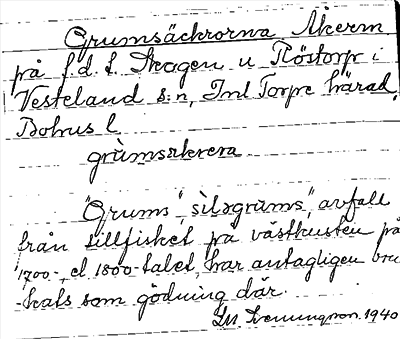 Grumsäckrorna Åkerm
på f.d. t. Skogen u Röstorp i
Vesteland s:n, Inl Torpe härad,
Bohus l
grùmsækrera
"Grums", sìləgrùms, avfall
från sillfisket på västkusten på
1700-, el 1800-talet, har antagligen bru
kats som gödning där.
1940